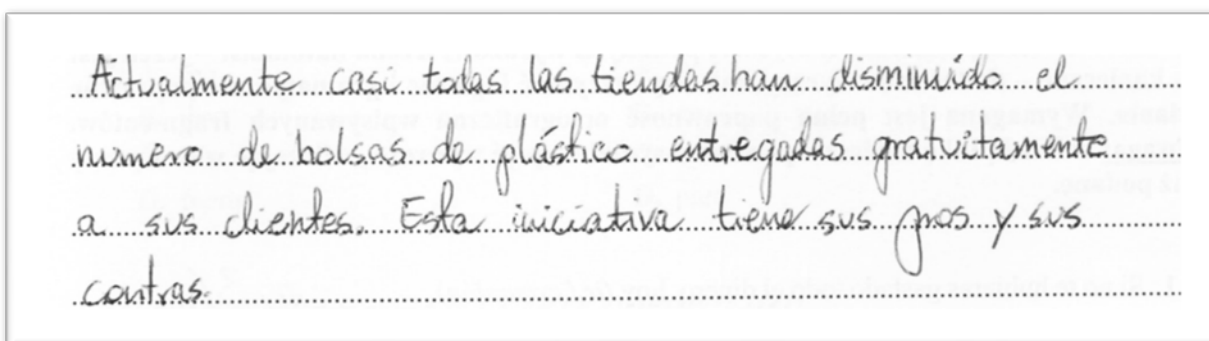 Actualmente casi todas las tiendas han disminuido el
numero de bolsas de plástico entregadas gratuitamente
a sus clientes. Esta iniciativa tiene sus pros y sus
contras.